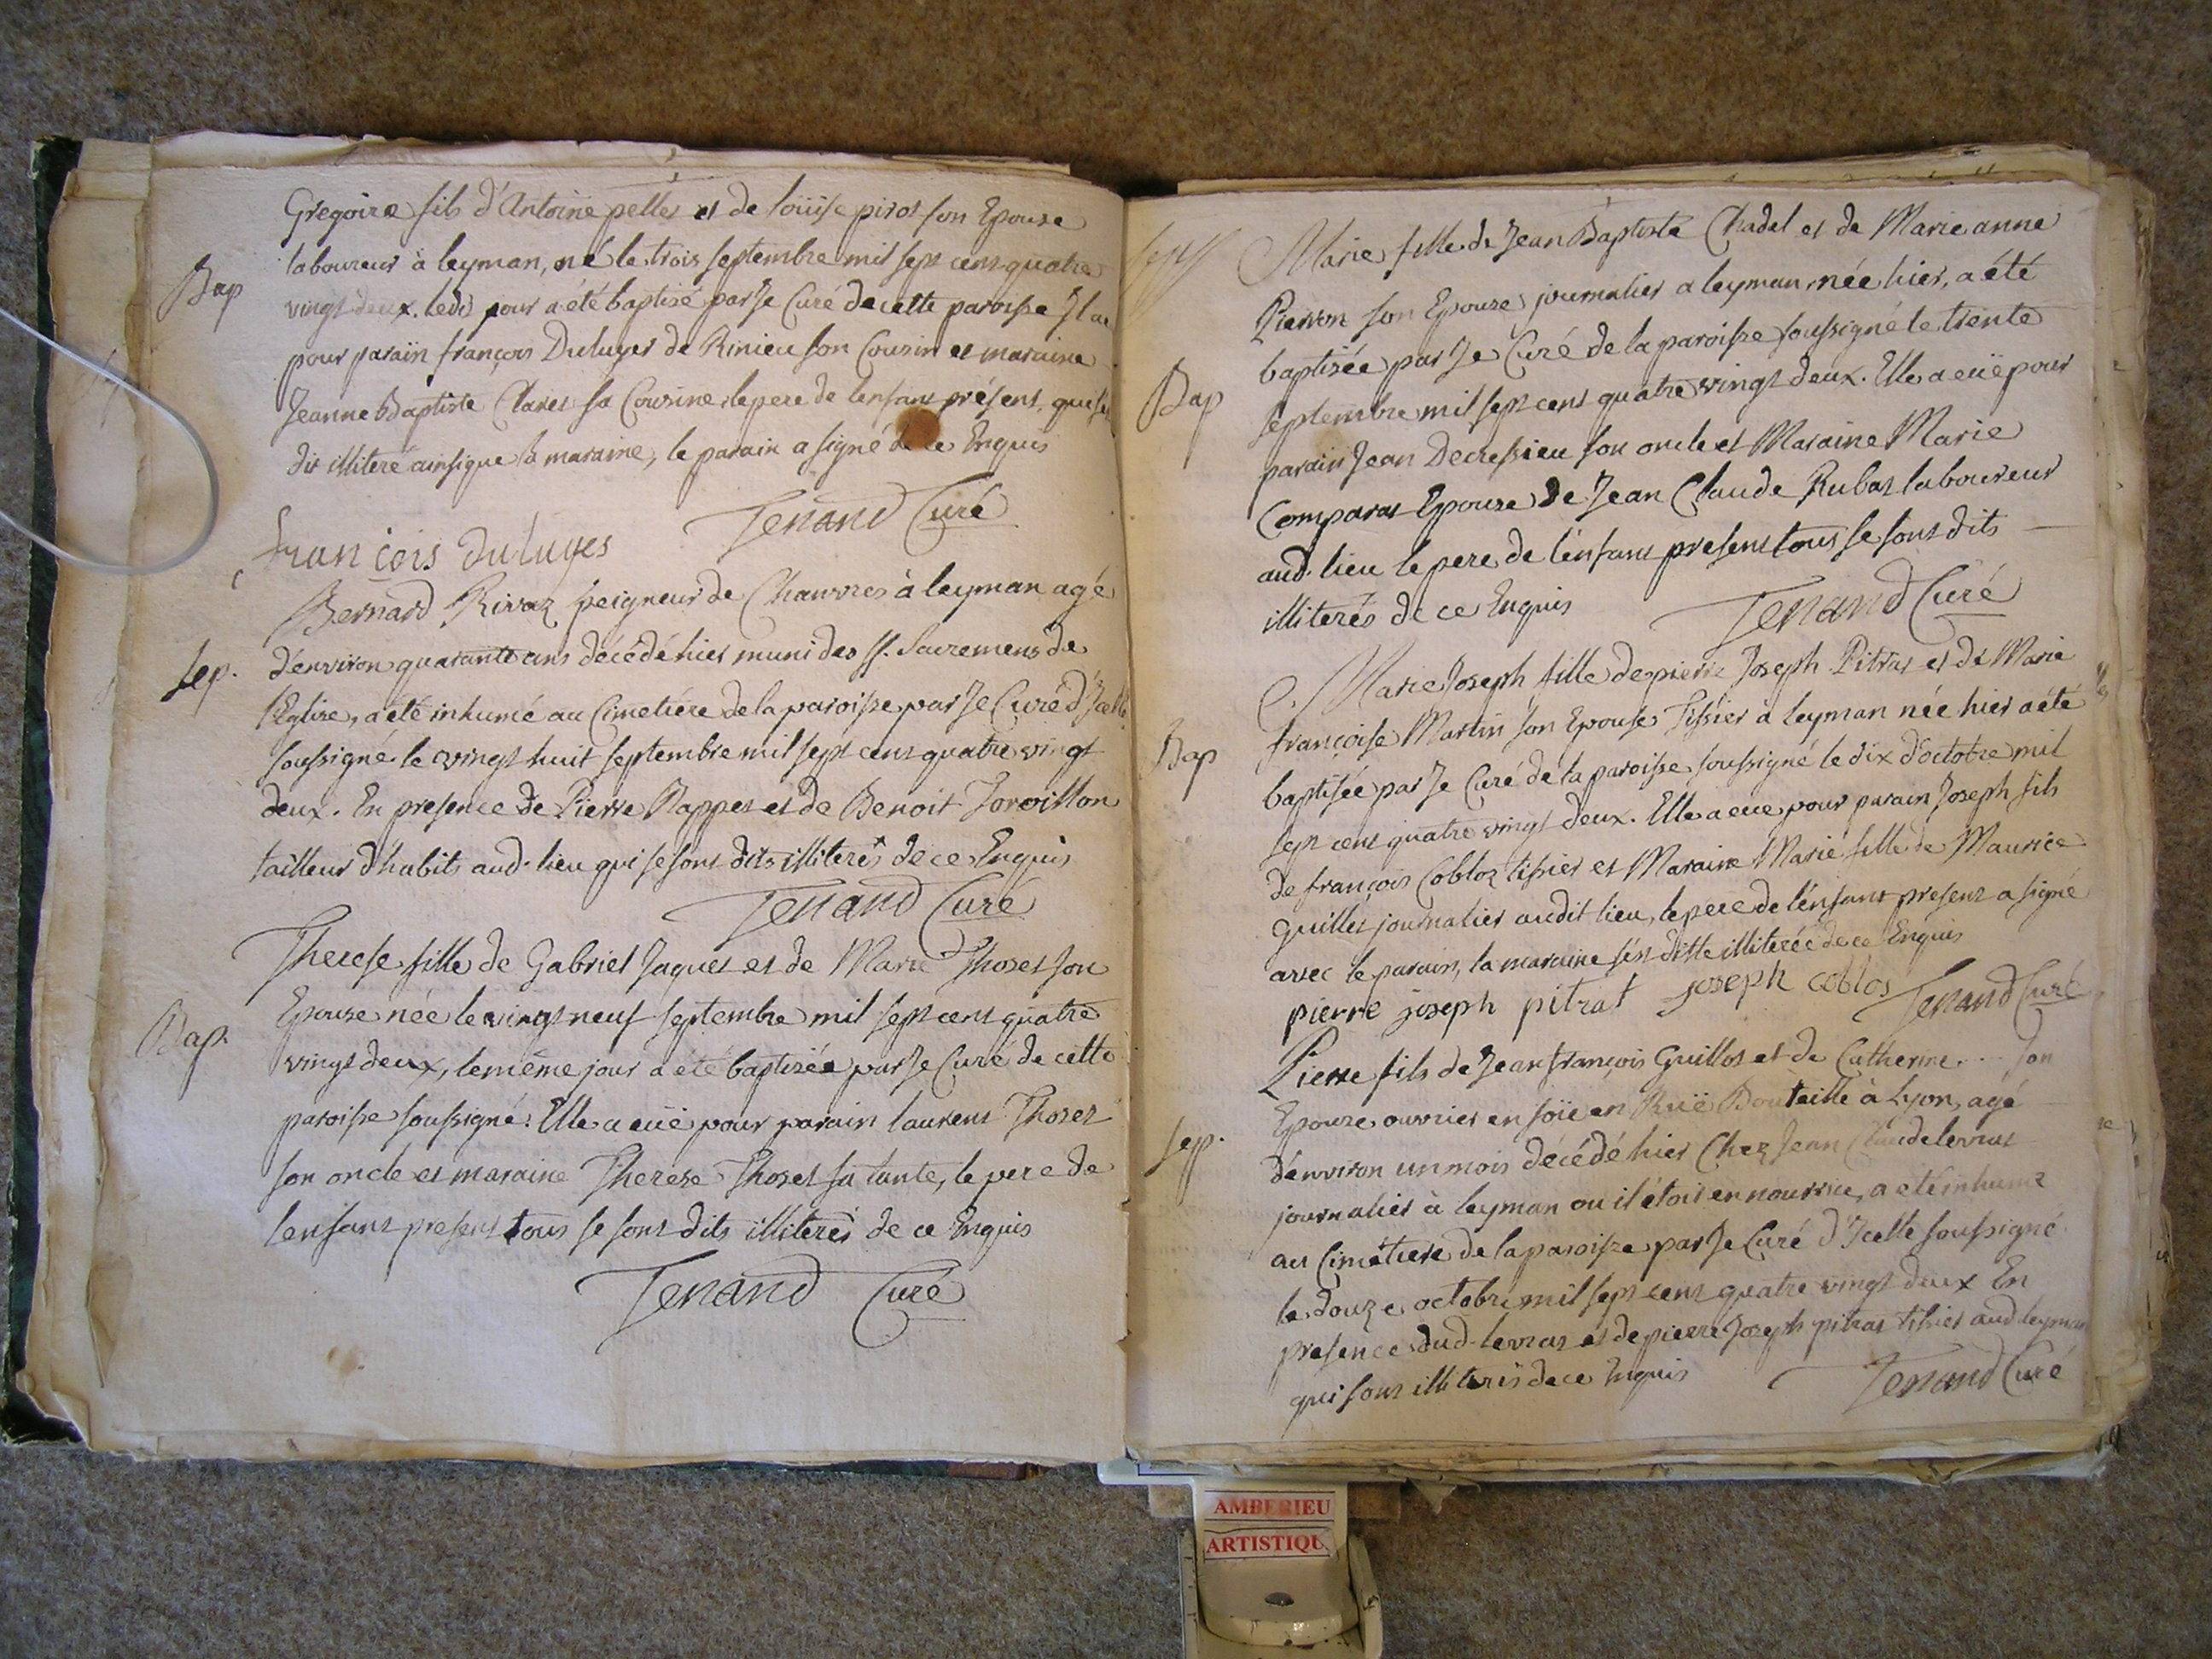 Gregoire fils d'Antoine pellet et de loüise pirot son Epouse
laboureur à leyman, né le trois septembre mil sept cens quatre
Bap
vingt deux. ledit jour a été baptisé par Je Curé de cette paroisse Il a
pour parain françois Duluyer de Rinieu son Cousin et maraine
Jeanne Baptiste Claret sa Cousine, le pere de lenfant présent, qui s'est
dit illiteré ainsi que la maraine, le parain a signé de ce Enquis
françois duluyes
Tenand Curé
Bernard Rivaz peigneur de Chanvres à leyman agé
Sep.
d'environ quarante ans décédé hier muni des SS. Sacremens de
l'Eglise, a été inhumé au Cimetiére de la paroisse par Je Curé d'Icelle
soussigné le vingt huit septembre mil sept cens quatre vingt
deux. En presence de Pierre Rappet et de Benoit
tailleur d'habits aud. lieu qui se sont dits illiterés de ce Enquis
Tenand Curé
Therese fille de Gabriel Jaquet et de Marie Thoset son
Epouse née le vingt neuf septembre mil sept cens quatre
Bap.
vingt deux, le même jour a été baptisée par Je Curé de cette
paroisse soussigné. Elle a euë pour parain laurent Thoset
son oncle et maraine Therese Thoset sa tante, le pere de
lenfant present tous se sont dits illiterés de ce Enquis
Tenand Curé
Marie fille de Jean Baptiste Chadel et de Marie anne
Pierron son Epouse journalier a leyman, née hier, a été
baptisée par Je Curé de la paroisse soussigné le trente
Bap
septembre mil sept cens quatre vingt deux. Elle a euë pour
parain Jean Decressieu son oncle et Maraine Marie
Comparat Epouse de Jean Claude Rubat laboureur
aud. lieu le pere de l'enfant present tous se sont dits
illiterés de ce Enquis
Tenand Curé
Marie Joseph fille de pierre Joseph Pitrat et de Marie
françoise Martin son Epouse Tissier à leyman née hier a été
Bap
baptisée par Je Curé de la paroisse soussigné le dix d'octobre mil
sept cens quatre vingt deux. Elle a eue pour parain Joseph fils
de françois Cobloz tissier et Maraine Marie fille de Maurice
Guillet journalier audit lieu, le pere de l'enfant present a signé
avec le parain, la maraine s'est ditte illiterée de ce Enquis
pierre joseph pitrat joseph coblos Tenand Curé
Pierre fils de Jean françois Guillot et de Catherine .... son
Epouse ouvrier en soïe en Ruë Bouteille à Lyon, agé
Sep.
d'environ un mois décédé hier Chez Jean Claude levrat
journalier à leyman ou il étoit en nourrice, a été inhumé
au Cimetiere de la paroisse par Je Curé d'Icelle soussigné
le douze octobre mil sept cens quatre vingt deux En
presence dud. levrat et de pierre Joseph pitrat tissier aud. leyman
qui sont illiterés de ce Enquis
Tenand Curé
AMBERIEU
ARTISTIQU